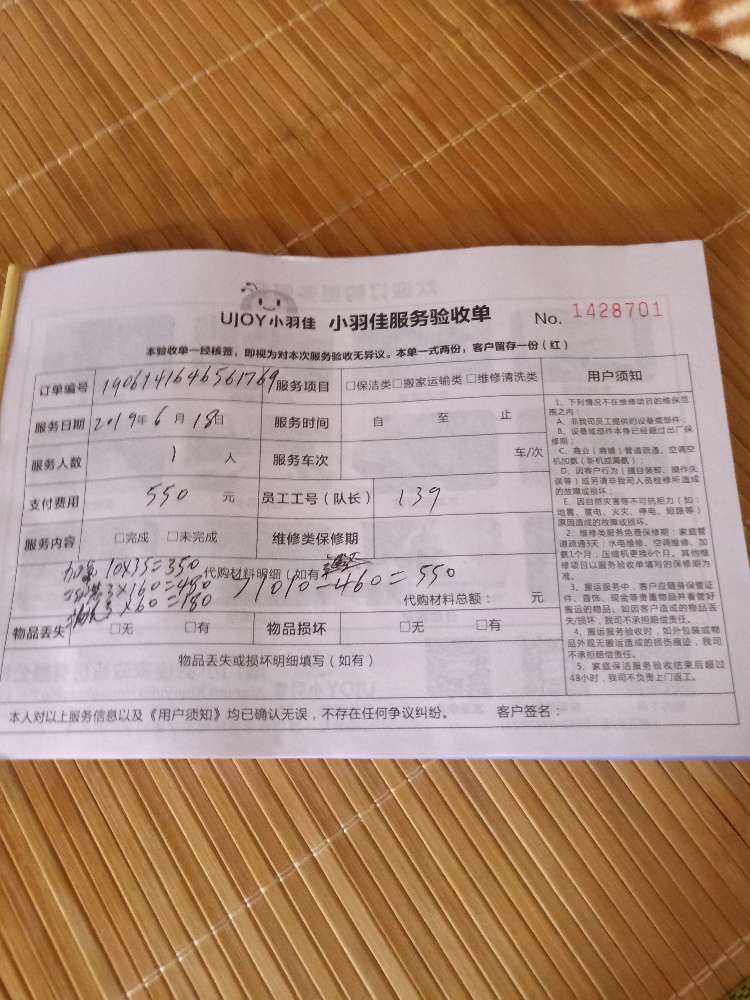 UJOY小羽佳 小羽佳服务验收单 No. 1428701
本验收单一经核签，即视为对本次服务验收无异议。本单一式两份，客户留存一份（红）
订单编号 1906141646561769 服务项目 □保洁类□搬家运输类□维修清洗类
服务日期 2019年6月18日 服务时间 自 至 止
服务人数 1 人 服务车次 车/次
支付费用 550 元 员工工号（队长） 139
服务内容 □完成 □未完成 维修类保修期
10×35=350 代购材料明细（如有
3×160=480 1010-460=550
3×60=180 代购材料总额： 元
物品丢失 □无 □有 物品损坏 □无 □有
物品丢失或损坏明细填写（如有）
本人对以上服务信息以及《用户须知》均已确认无误，不存在任何争议纠纷。 客户签名：
用户须知
1、下列情况不在维修项目的维保范
围之内：
A、非我司员工提供的设备或部件；
B、设备或部件本身已经超过出厂保
修期；
C、商业（商铺）管道疏通、空调空
机加氟（新机或漏氟）；
D、因客户行为（擅自装卸、操作失
误等）或另请非我司人员检修所造成
的故障或损坏；
E、因自然灾害等不可抗拒力（如：
地震、雷电、火灾、停电、短路等）
原因造成的故障或损坏。
2、维修类服务免费保修期：家庭管
道疏通3天；水电维修、空调维修、加
氟1个月；压缩机更换6个月。其他维
修项目以服务验收单填写的保修期为
准。
3、搬运服务中，客户应随身保管证
件、首饰、现金等贵重物品并看管好
搬运的物品。如因客户造成的物品丢
失/损坏，我司不承担赔偿责任。
4、搬运服务验收时，如外包装或物
品外观无搬运造成的损伤痕迹，我司
不承担赔偿责任。
5、家庭保洁服务验收结束后超过
48小时，我司不负责上门返工。